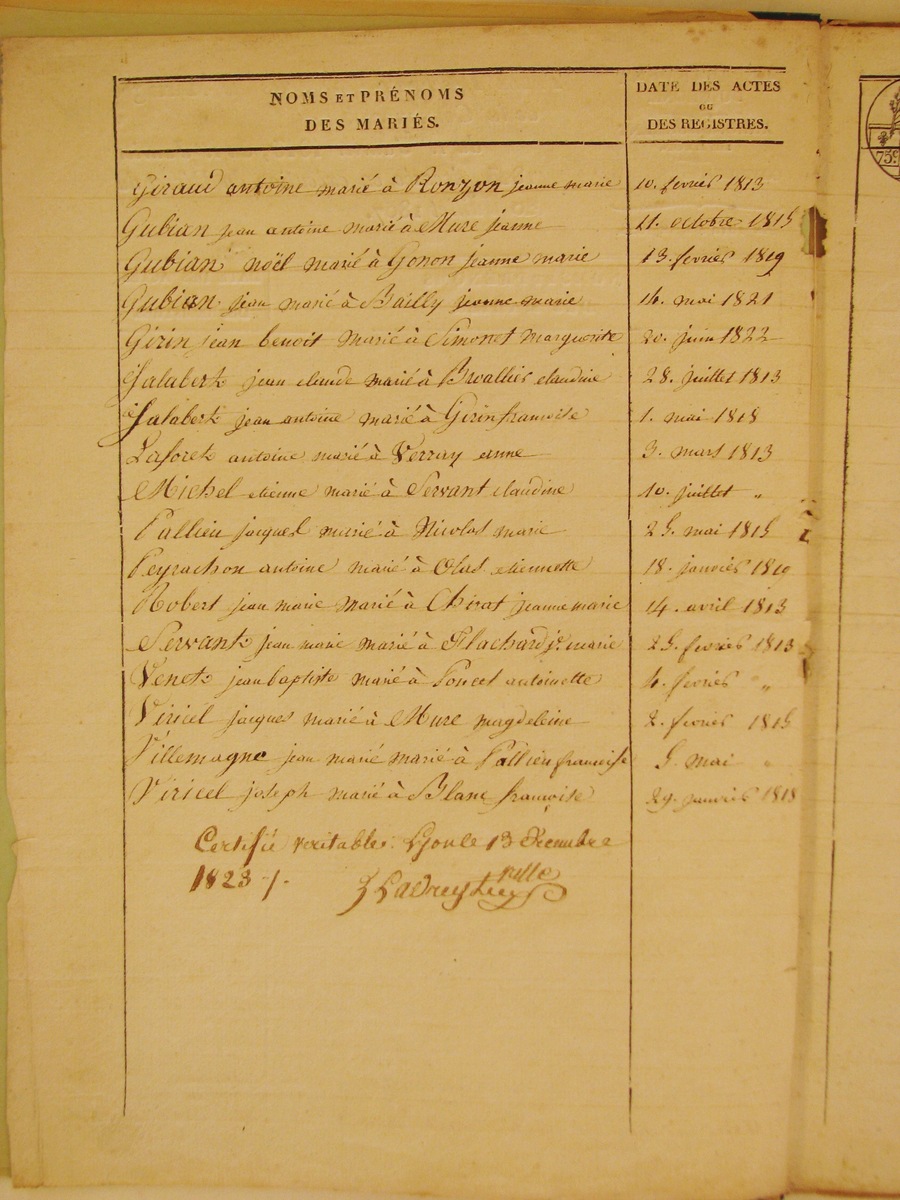 NOMS ET PRÉNOMS
DES MARIÉS.
DATE DES ACTES
OU
DES REGISTRES.
Giraud antoine marié à Ronzon jeanne marie 10. fevrier 1813
Gubian jean antoine marié à Mure jeanne 21. octobre 1815
Gubian noël marié à Gonon jeanne marie 13. fevrier 1819
Gubian jean marié à Bailly jeanne marie 14. mai 1821
Girin jean benoit marié à Simonet marguerite 20. juin 1822
Jalabert jean claude marié à claudine 28. juillet 1813
Jalabert jean antoine marié à Girin francoise 1. mai 1818
Laforet antoine marié à Verray anne 3. mars 1813
Michel etienne marié à Servant claudine 10. juillet "
Pallieu jacques marié à Nicolas marie 25. mai 1815
Peyrachon antoine marié à Olas etiennette 18. janvier 1810
Robert jean marie marié à Chirat jeanne marie 14. avril 1813
Servant jean marie marié à Flachard jne marie 25. fevrier 1813
Venet jean baptiste marié à Poncet antoinette 4. fevrier "
Viricel jacques marié à Mure magdeleine 2. fevrier 1815
Villemagne jean marié marié à Pallieu francoise 5. mai "
Viricel joseph marié à Blanc françoise 29. janvier 1818
Certifié veritable. Lyon le 13 Decembre
1823
75c